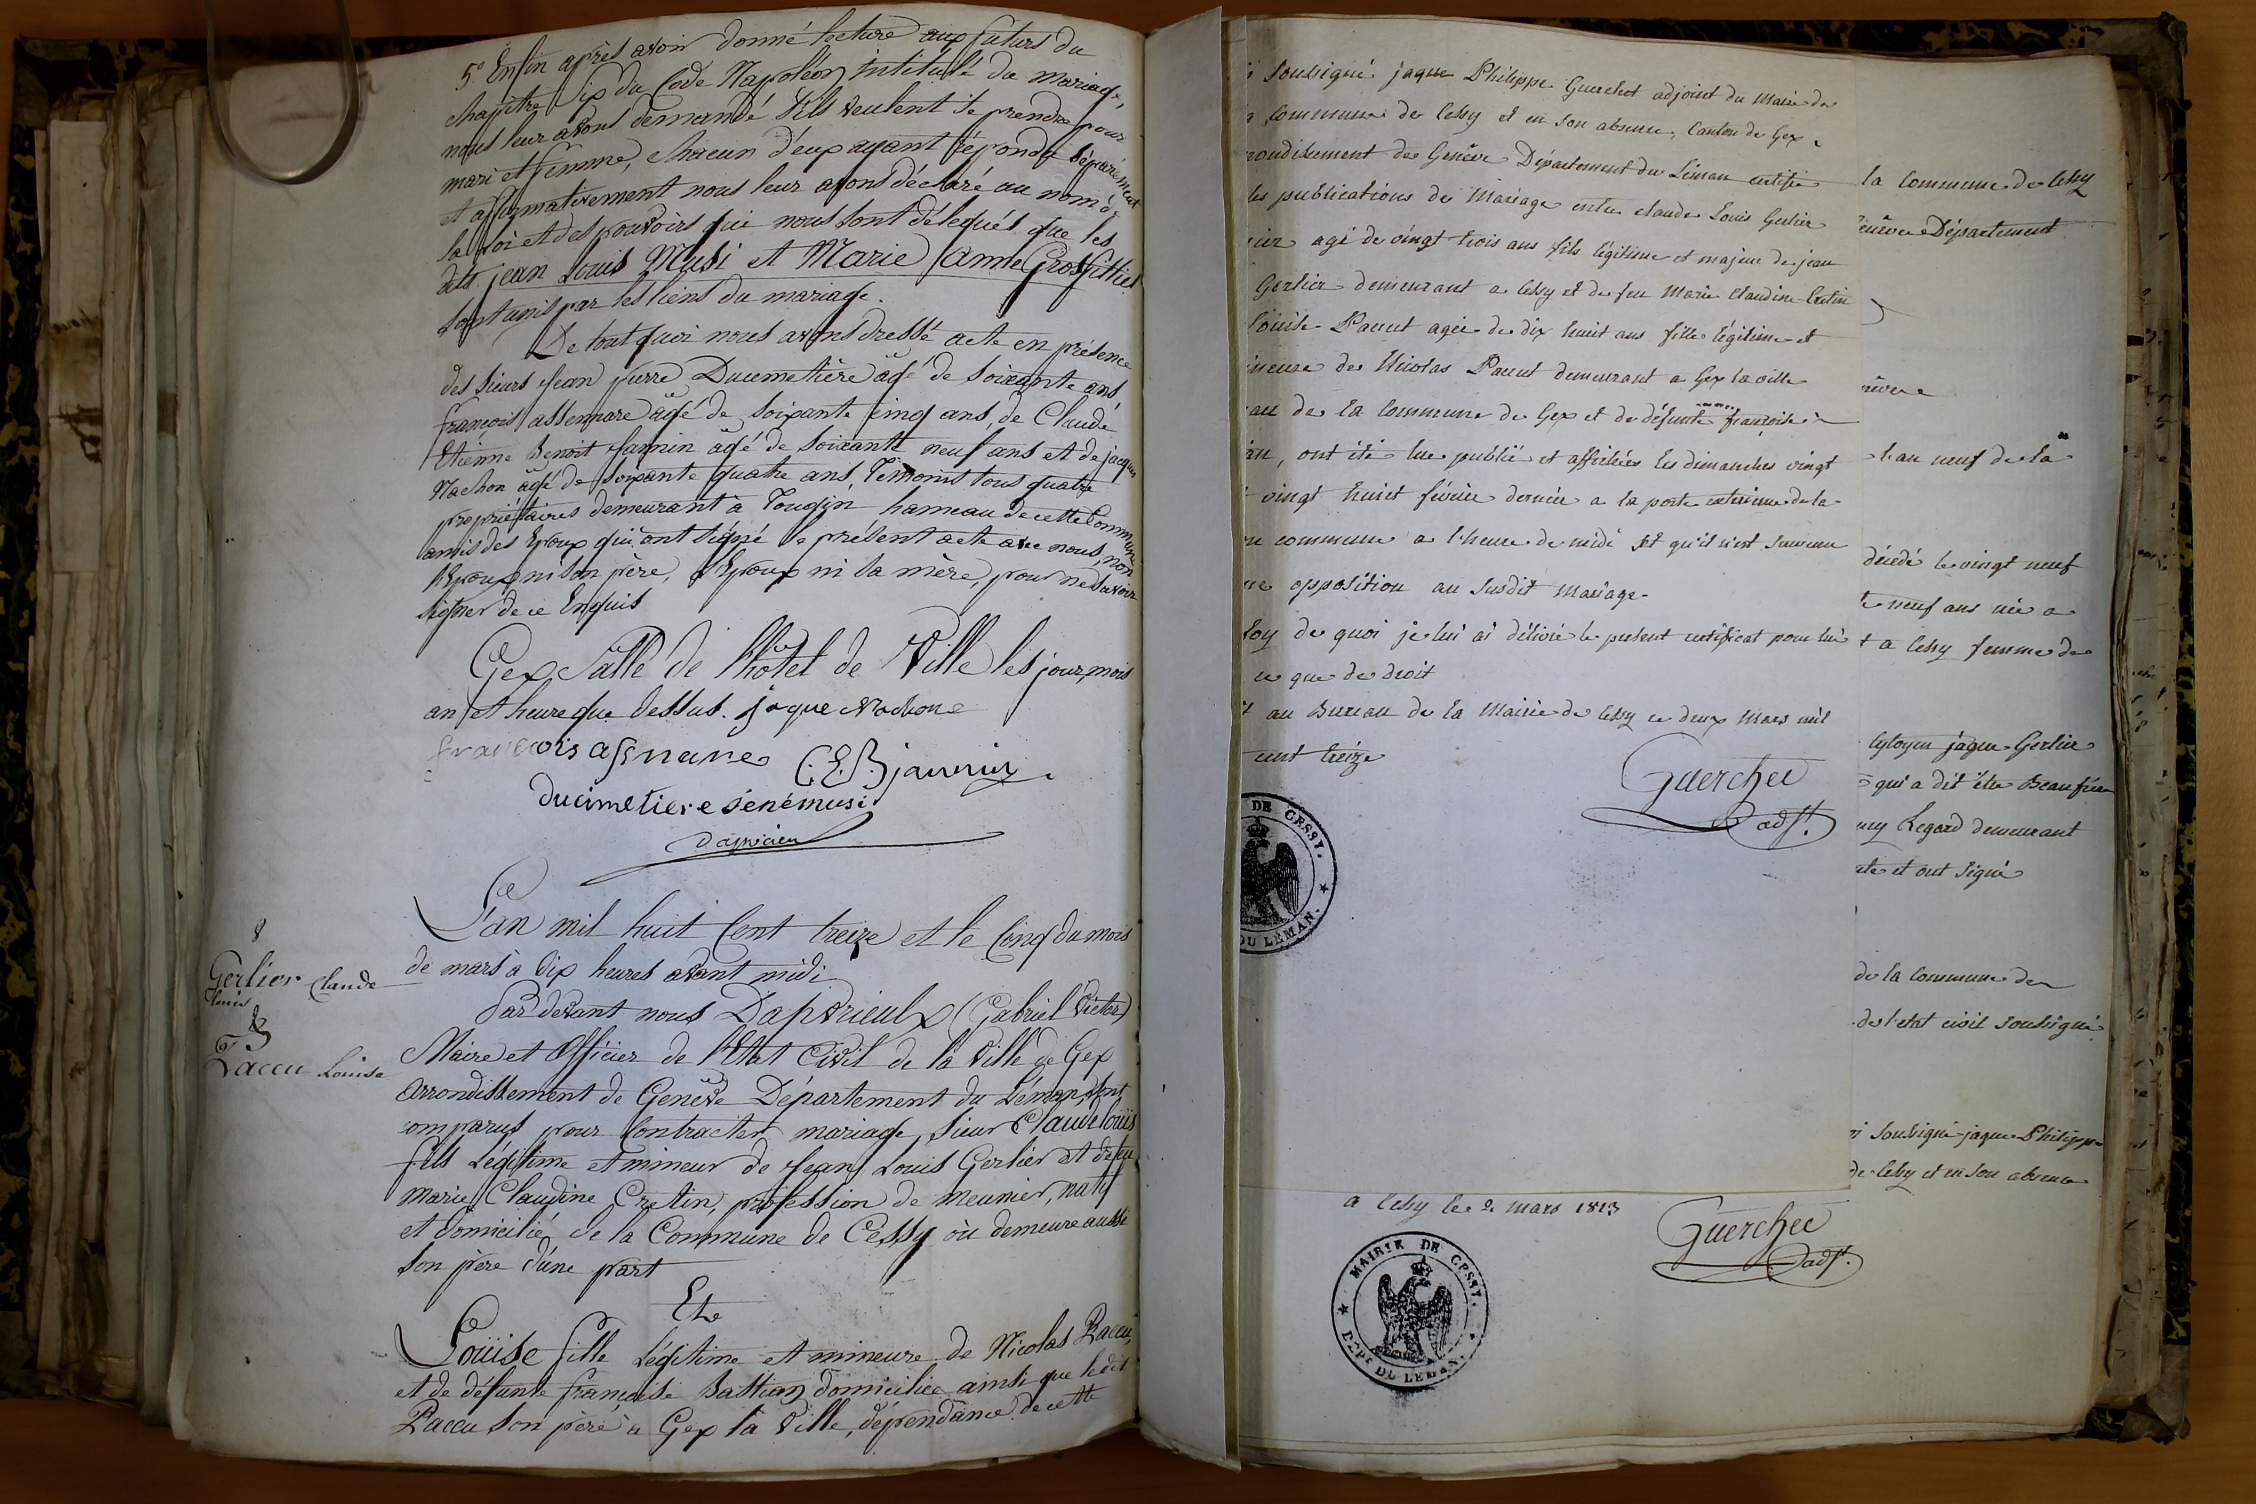 5° Enfin après avoir donné lecture aux futurs du
chapitre six du Code Napoléon intitulé du mariage,
nous leur avons demandé s'ils veulent se prendre pour
mari et femme, chacun d'eux ayant répondu séparément
et affirmativement nous leur avons déclaré au nom de
la loi et des pouvoirs qui nous sont délégués que les
dits jean Louis Musi et Marie Anne Grosfillier
sont unis par les liens du mariage.
De tout quoi nous avons dressé acte en présence
des sieurs Jean pierre Ducimetière âgé de soixante ans,
françois assennare âgé de soixante cinq ans, de Claude
Etienne Benoit Jannin âgé de soixante neuf ans et de jacques
Nachon âgé de soixante quatre ans, Témoins tous quatre
propriétaires demeurant à Tougin hameau de cette Commune
amis des Epoux qui ont signé le présent acte avec nous, non
l'Epoux ni son père, l'Epouse ni sa mère, pour ne savoir
signer de ce Enquis
Gex Salle de l'hôtel de Ville les jour, mois
an et heure que dessus. jaque Nachon
françois C.E.B. jannin
ducimetiere
8
Gerlier Claude
Louis
&
Paccu Louise
L'an mil huit Cent treize et le Cinq du mois
de mars à dix heures avant midi
Par devant nous Dapvrieulx (Gabriel Victor)
Maire et Officier de l'Etat Civil de la Ville de Gex
Arrondissement de Genève Département du Léman, sont
comparus pour Contracter mariage, sieur Claude louis
fils Légitime et mineur de Jean Louis Gerlier et de feu
Marie Claudine Cretin, profession de meunier, natif
et domicilié de la Commune de Cessy où demeure aussi
son père d'une part
Et
Louise fille Légitime et mineure de Nicolas Paccu,
et de défunte françoise Bastian domiciliée ainsi que le dit
Paccu son père à Gex la Ville, dépendance de cette
soussigné jaque Philippe Guerchet adjoint du Maire de
commune de Cessy et en son absence, Canton de Gex
Genève Département du Léman certifie
les publications de Mariage entre claude Louis Gerlier
agé de vingt trois ans fils légitime et majeur de jean
Gerlier demeurant a Cessy et de feu Marie Claudine Cretin
Louise Paccut agée de dix huit ans fille légitime et
mineure de Nicolas Paccut demeurant a Gex la ville
de la Commune de Gex et de défunte françoise
ont été lue publié et affichées les dimanches vingt
vingt huit février dernier a la porte exterieure de la
commune a l'heure de midi et qu'il n'est survenu
opposition au susdit mariage
foy de quoi je lui ai délivré le present certificat pour lui
ce que de droit
au Bureau de la Mairie de Cessy ce deux Mars mil
cent treize
Guerchet
adjt.
DE CESSY.
DU LÉMAN.
a Cessy le 2 mars 1813
Guerchet
adjt.
MAIRIE DE CESSY.
DEPT DU LEMAN.
la Commune de Cessy
Département
l'an neuf de la
décédé le vingt neuf
neuf ans née a
a Cessy femme de
Citoyen jaque Gerlier
qui a dit être Beaufrere
Legard demeurant
et ont signé
de la Commune de
de l'etat civil soussigné
soussigné jaque Philippe
de Cessy et en son absence